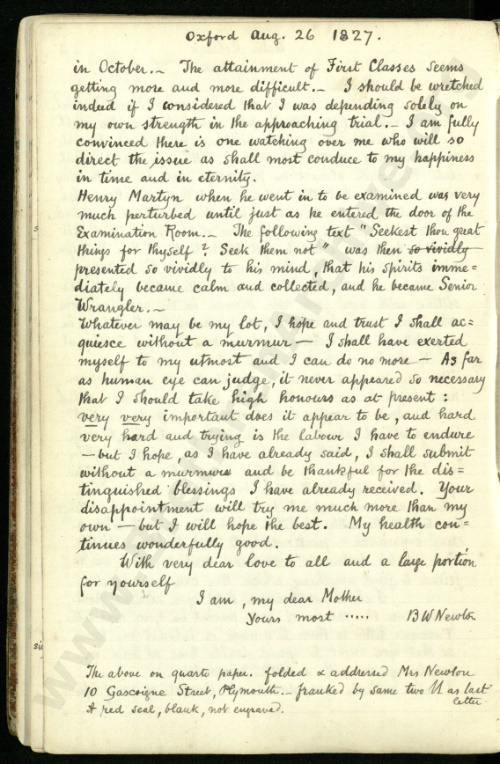 Oxford Aug. 26 1827.
in October. ~ The attainment of First Classes seems
getting more and more difficult. ~ I should be wretched
indeed if I considered that I was depending solely on
my own strength in the approaching trial. ~ I am fully
convinced there is one watching over me who will so
direct the issue as shall most conduce to my happiness
in time and in eternity.
Henry Martyn when he went in to be examined was very
much perturbed until just as he entered the door of the
Examination Room. ~ The following text "Seekest thou great
things for thyself? Seek them not" was then so vividly
presented so vividly to his mind, that his spirits imme=
diately became calm and collected, and he became Senior
Wrangler. ~
Whatever may be my lot, I hope and trust I shall ac=
quiesce without a murmur — I shall have exerted
myself to my utmost and I can do no more — As far
as human eye can judge, it never appeared so necessary
that I should take high honours as at present :
very very important does it appear to be, and hard
very hard and trying is the labour I have to endure
— but I hope, as I have already said, I shall submit
without a murmur and be thankful for the dis=
tinguished blessings I have already received. Your
disappointment will try me much more than my
own — but I will hope the best. My health con=
tinues wonderfully good.
With very dear love to all and a large portion
for yourself
I am, my dear Mother
Yours most ..... B W Newton
The above on quarto paper. folded & addressed Mrs Newton
10 Gascoigne Street, Plymouth. — franked by same two as last
letter
A red seal, blank, not engraved.